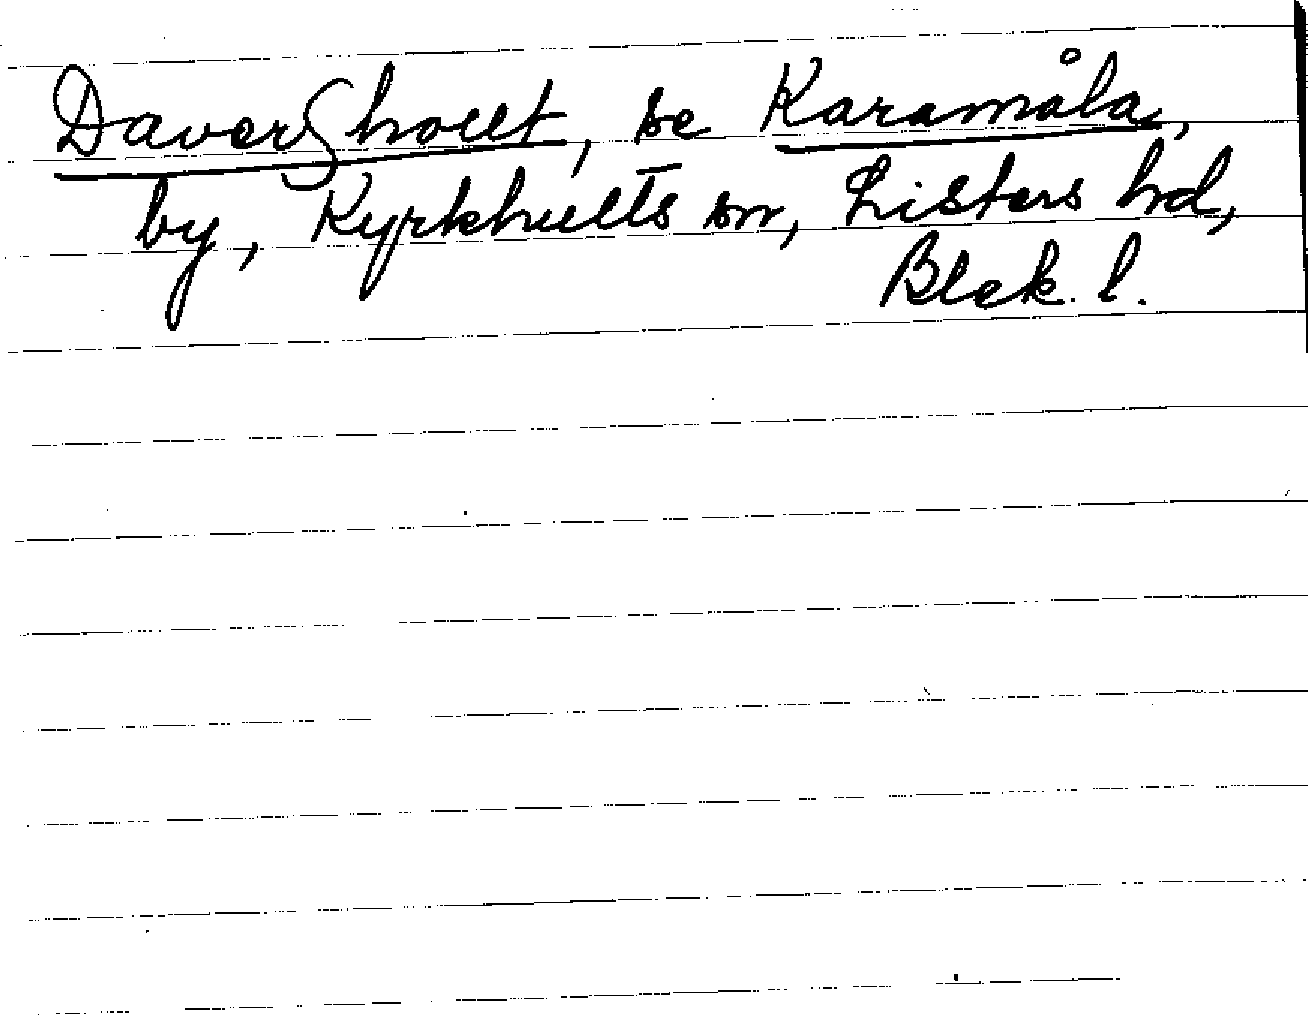 se Karamåla,
by, Kyrkhults sn, Listers hd,
Blek. l.